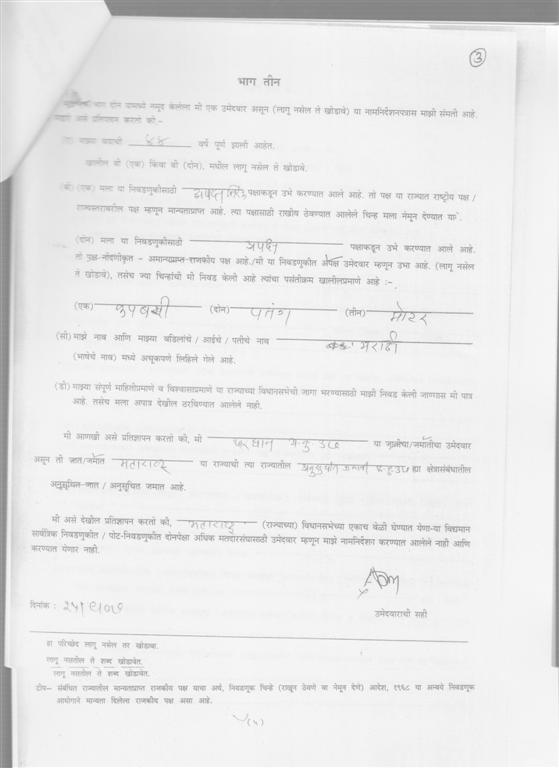 3
भाग तीन
भाग दोन यामध्ये नमूद केलेला मी एक उमेदवार असून (लागू नसेल ते खोडावे) या नामनिर्देशनपत्रास माझी संमती आहे.
असे प्रतिज्ञापन करतो की -
माझ्या वयाची ४४ वर्षे पूर्ण झाली आहेत.
खालील बी (एक) किंवा बी (दोन), मधील लागू नसेल ते खोडावे.
(बी) (एक) मला या निवडणुकीसाठी पक्षाकडून उभे करण्यात आले आहे. तो पक्ष या राज्यात राष्ट्रीय पक्ष /
राज्यस्तरावरील पक्ष म्हणून मान्यताप्राप्त आहे. त्या पक्षासाठी राखीव ठेवण्यात आलेले चिन्ह मला नेमून देण्यात
(दोन) मला या निवडणुकीसाठी अपक्ष पक्षाकडून उभे करण्यात आले आहे.
तो पक्ष-नोंदणीकृत - अमान्यप्राप्त-राजकीय पक्ष आहे./मी या निवडणुकीत अपक्ष उमेदवार म्हणून उभा आहे. (लागू नसेल
ते खोडावे), तसेच ज्या चिन्हांची मी निवड केली आहे त्यांचा पसंतीक्रम खालीलप्रमाणे आहे :-.
(एक) कपबशी (दोन) पतंग (तीन) मोटर
(सी) माझे नाव आणि माझ्या वडिलांचे / आईचे / पतीचे नाव मराठी
(भाषेचे नाव) मध्ये अचूकपणे लिहिले गेले आहे.
(डी) माझ्या संपूर्ण माहितीप्रमाणे व विश्वासाप्रमाणे या राज्याच्या विधानसभेची जागा भरण्यासाठी माझी निवड केली जाण्यास मी पात्र
आहे. तसेच मला अपात्र देखील ठरविण्यात आलेले नाही.
मी आणखी असे प्रतिज्ञापन करतो की, मी या जातीचा/जमातीचा उमेदवार
असून ती जात/जमात महाराष्ट्र या राज्याची त्या राज्यातील ह्या क्षेत्रासंबंधातील
अनुसूचित-जात / अनुसूचित जमात आहे.
मी असे देखील प्रतिज्ञापन करतो की, महाराष्ट्र (राज्याच्या) विधानसभेच्या एकाच वेळी घेण्यात येणा-या विद्यमान
सार्वत्रिक निवडणुकीत / पोट-निवडणुकीत दोनपेक्षा अधिक मतदारसंघासाठी उमेदवार म्हणून माझे नामनिर्देशन करण्यात आलेले नाही आणि
करण्यात येणार नाही.
उमेदवाराची सही
दिनांक :
हा परिच्छेद लागू नसेल तर खोडावा.
लागू नसतील ते शब्द खोडावेत.
लागू नसतील ते शब्द खोडावेत.
टीप- संबंधित राज्यातील मान्यताप्राप्त राजकीय पक्ष याचा अर्थ, निवडणूक चिन्हे (राखून ठेवणे वा नेमून देणे) आदेश, १९६८ या अन्वये निवडणूक
आयोगाने मान्यता दिलेला राजकीय पक्ष असा आहे.